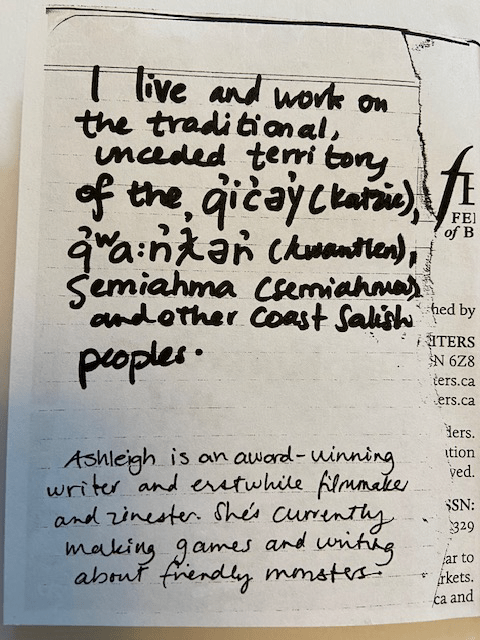 I live and work on
the traditional,
unceded territory
of the q̓ic̓əy̓ (katzie),
q̓ʷa:n̓ƛ̓ən̓ (kwantlen),
Semiahma (semiahmoo)
and other coast Salish
peoples.
Ashleigh is an award-winning
writer and erstwhile filmmaker
and zinester. She's currently
making games and writing
about friendly monsters.
FEI
of B
hed by
ITERS
N 6Z8
ters.ca
ers.ca
ders.
ation
yed.
SSN:
329
ar to
rkets.
ca and